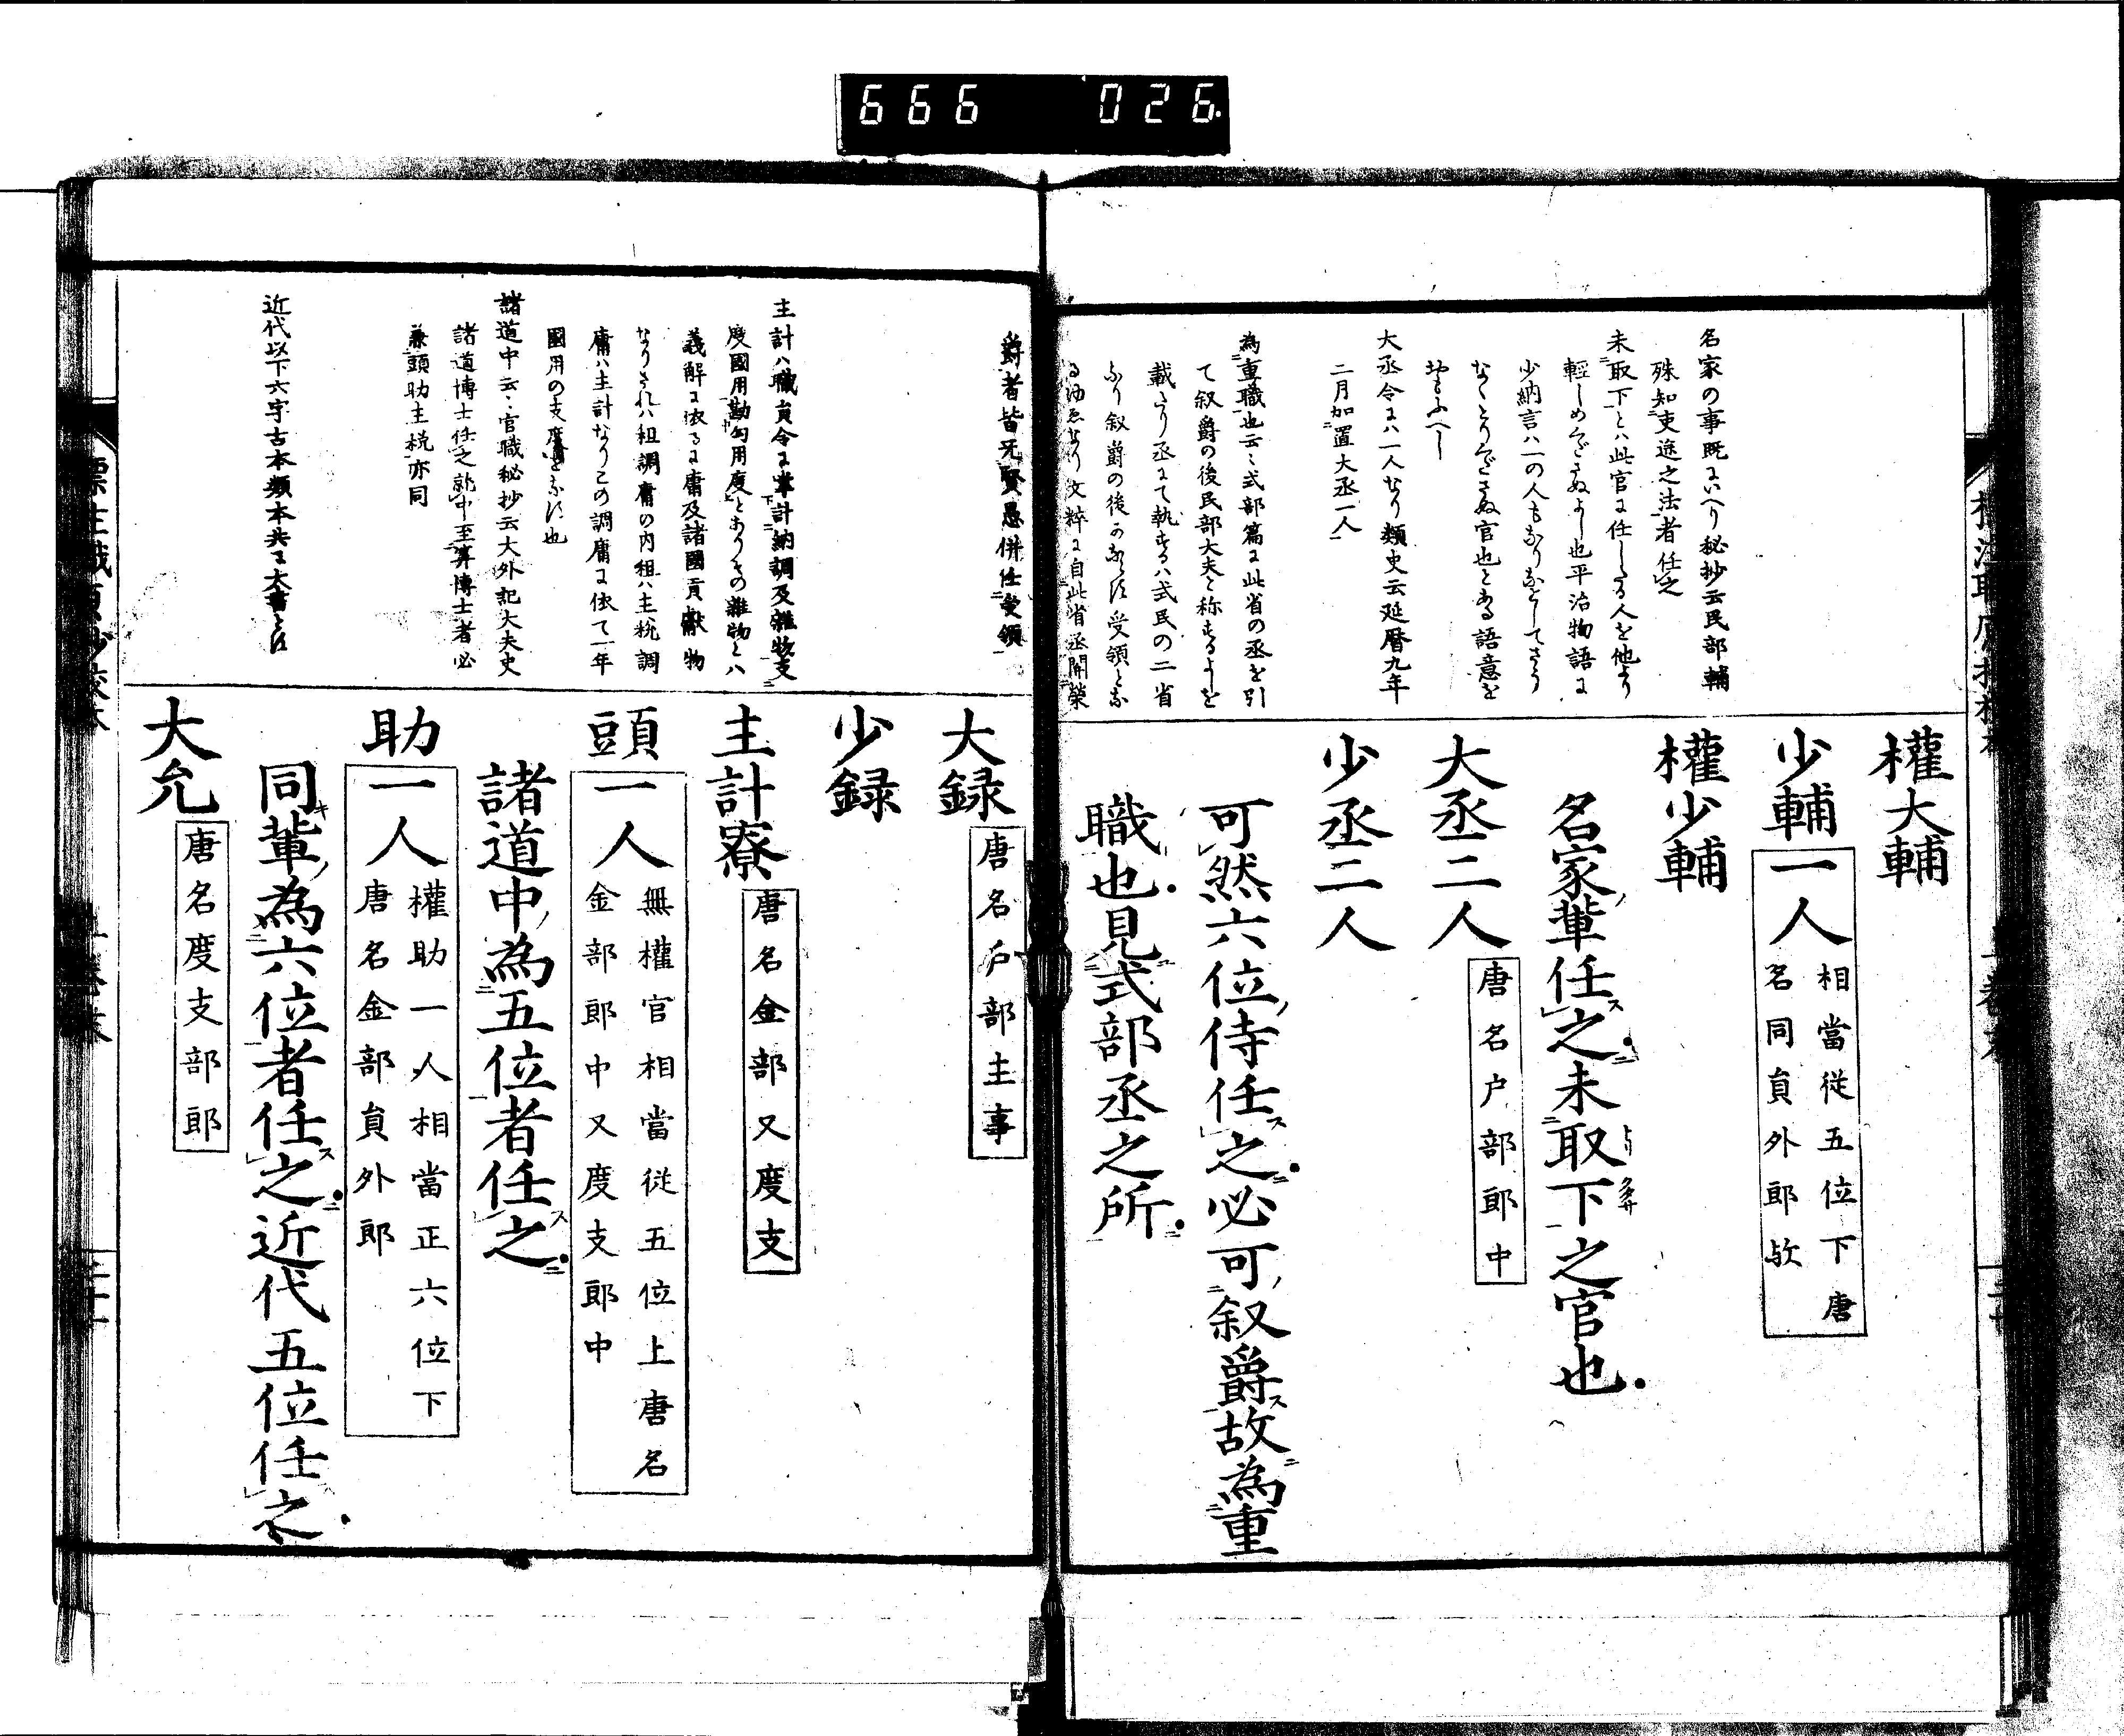 666 026.
名家の事既にいへり秘抄云民部輔
殊知吏途之法者任之
未取下とハ此官に任したる人を他より
輕しめくださぬよし也平治物語に
少納言ハ一の人もなりなどしてさう
なくとりくださぬ官也とある語意を
おもふへし
大丞令にハ一人なり類史云延暦九年
二月加置大丞一人
為重職也云々式部篇に此省の丞を引
て叙爵の後民部大夫と称するよしを
載たり丞にて執するハ式民の二省
なり叙爵の後かならず受領とな
るゆゑなり文粹に自此省丞開榮
權大輔
少輔一人 相當従五位下唐
名同員外郎欤
權少輔
名家輩任之未取下之官也
大丞二人 唐名户部郎中
少丞二人
可然六位侍任之必可叙爵故為重
職也見式部丞之所
爵者皆无賢愚併任受領
主計ハ職員令に掌計納調及雜物支
度國用勘勾用度とありその雜物とハ
義解に依るに庸及諸國貢獻物
なりされハ租調庸の内租ハ主税調
庸ハ主計なりこの調庸に依て一年
國用の支度をなす也
諸道中云々官職秘抄云大外記大夫史
諸道博士任之就中至算博士者必
兼頭助主税亦同
近代以下六字古本類本共に大書とす
大録 唐名户部主事
少録
主計寮 唐名金部又度支
頭一人 無權官相當従五位上唐名
金部郎中又度支郎中
諸道中為五位者任之
助一人 權助一人相當正六位下
唐名金部員外郎
同輩為六位者任之近代五位任之
大允 唐名度支部郎